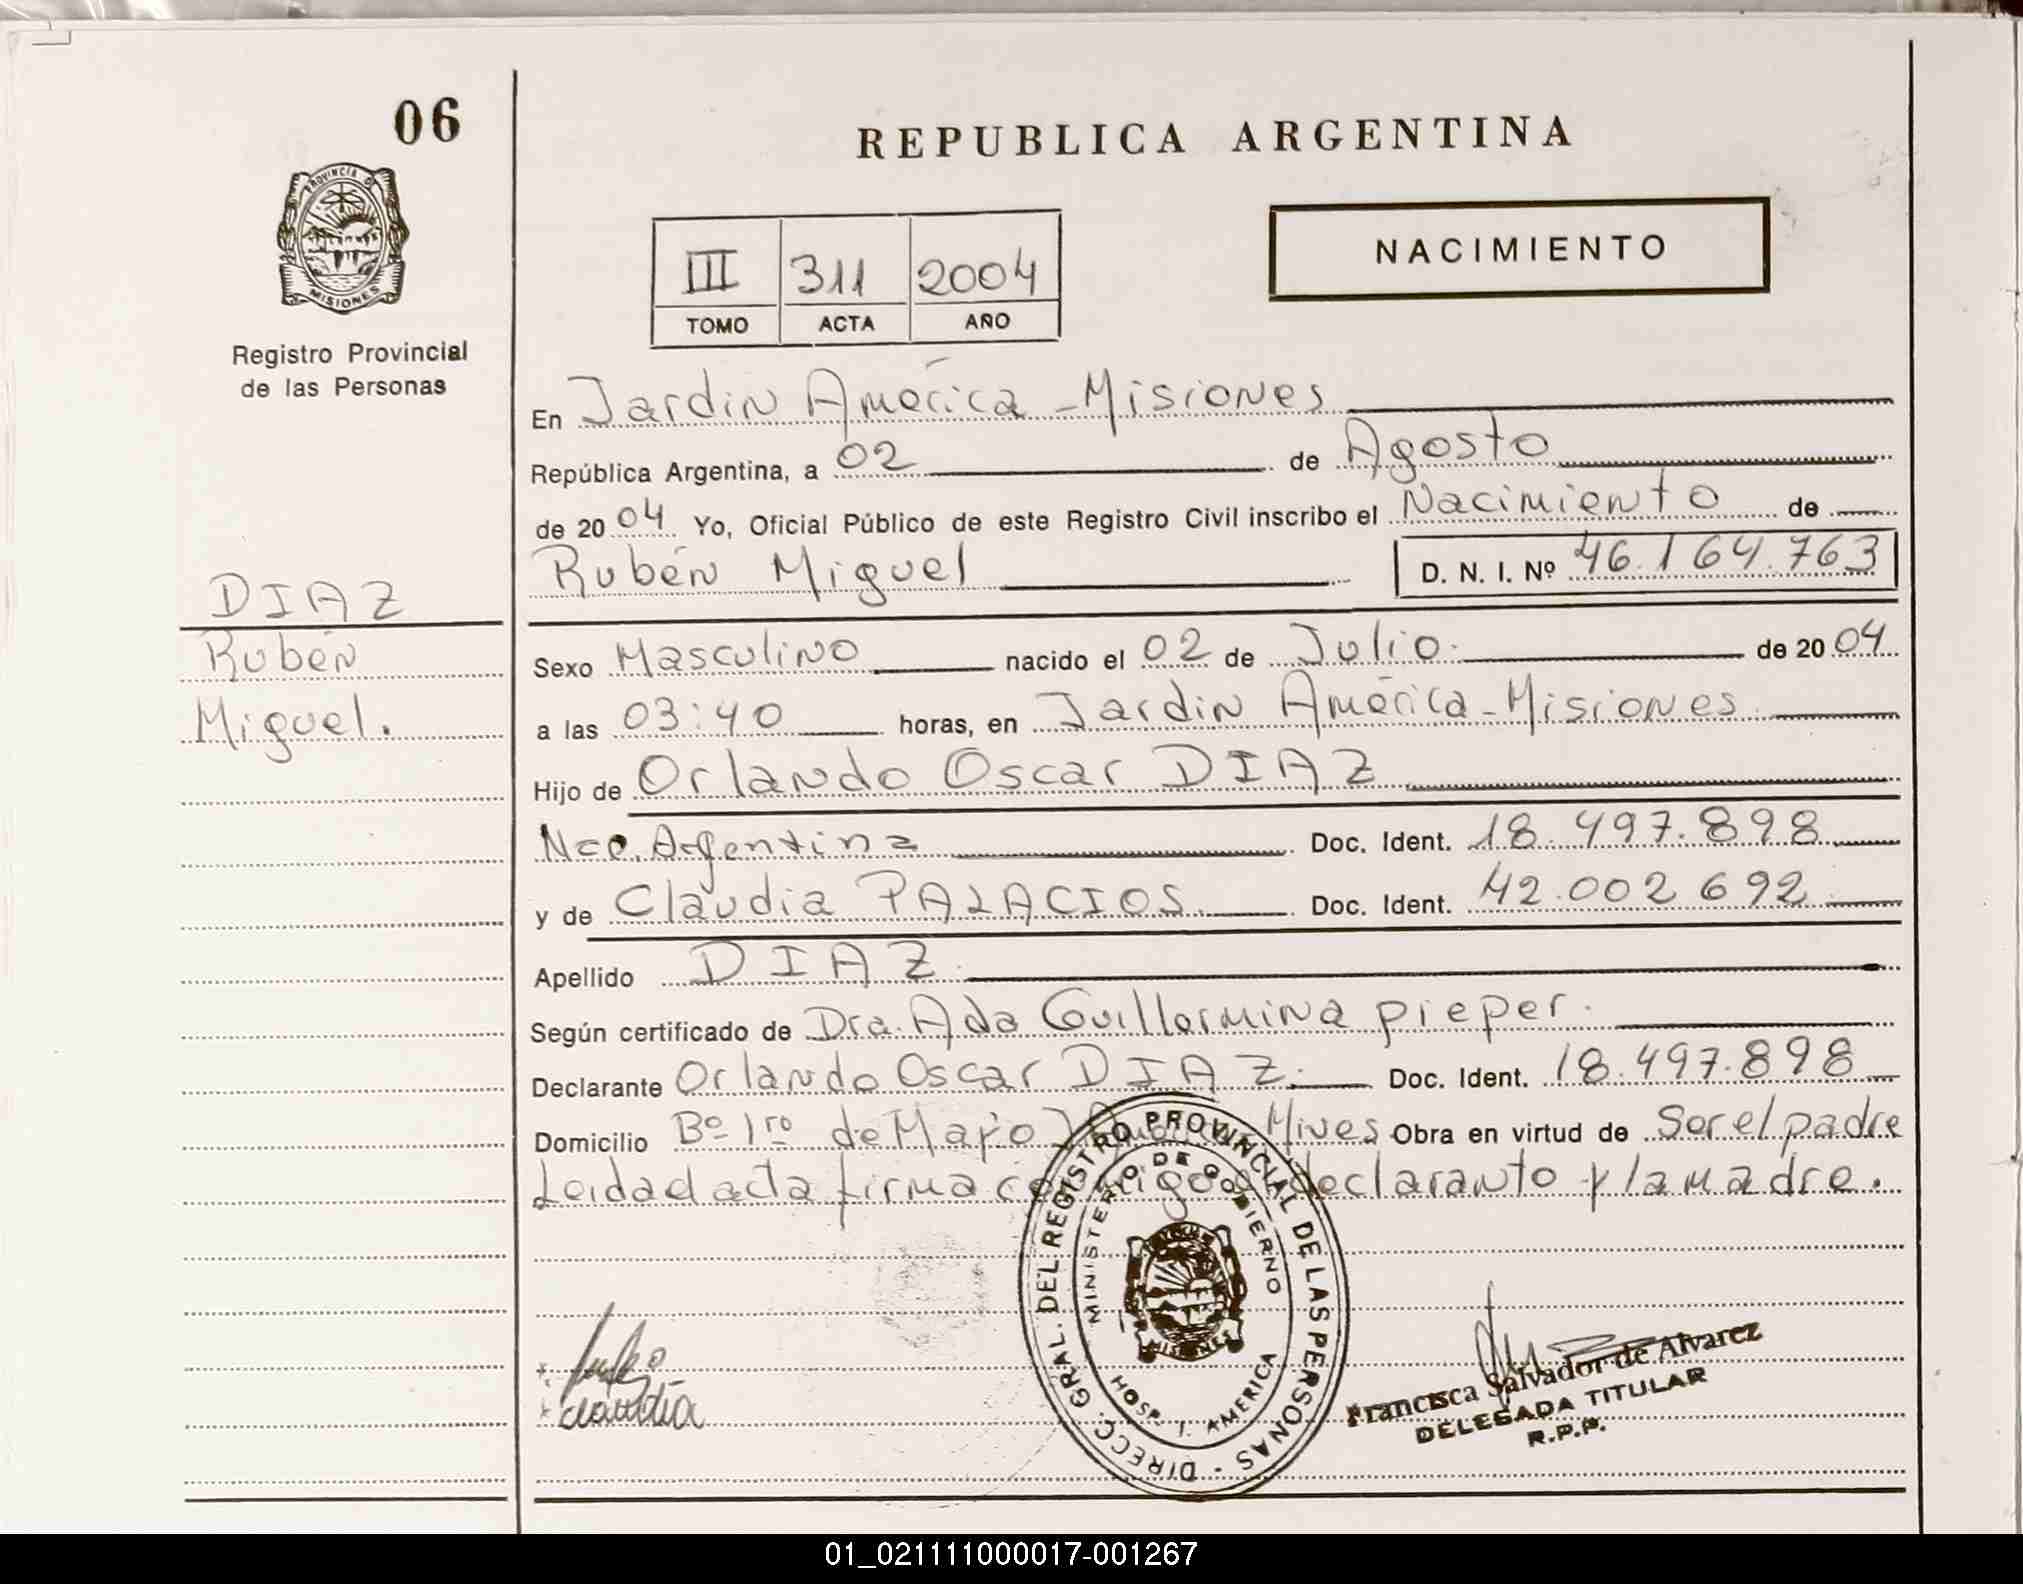 06
REPUBLICA ARGENTINA
PROVINCIA D
MISIONES
NACIMIENTO
III 311 2004
TOMO ACTA AÑO
Registro Provincial
de las Personas
En Jardin América - Misiones
República Argentina, a 02 de Agosto
de 2004 Yo, Oficial Público de este Registro Civil inscribo el Nacimiento de
Rubén Miguel D. N. I. Nº 46.164.763
DIAZ
Rubén
Miguel.
Sexo Masculino nacido el 02 de Julio de 2004
a las 03:40 horas, en Jardin América - Misiones
Hijo de Orlando Oscar DIAZ
Nac. Argentina Doc. Ident. 18.497.898
y de Claudia PALACIOS Doc. Ident. 42.002692
Apellido DIAZ
Según certificado de Dra. Ada Guillermina pieper.
Declarante Orlando Oscar DIAZ Doc. Ident. 18.497.898
Domicilio Bº 1ro de Mayo Mnes Obra en virtud de Ser el padre
Leida el acta firma conmigo el declarante y la madre.
DIRECC. GRAL. DEL REGISTRO PROVINCIAL DE LAS PERSONAS -
MINISTERIO DE GOBIERNO
HOSP. J. AMERICA
MISIONES
claudia
Francisca Salvador de Alvarez
DELEGADA TITULAR
R.P.P.
01_021111000017-001267